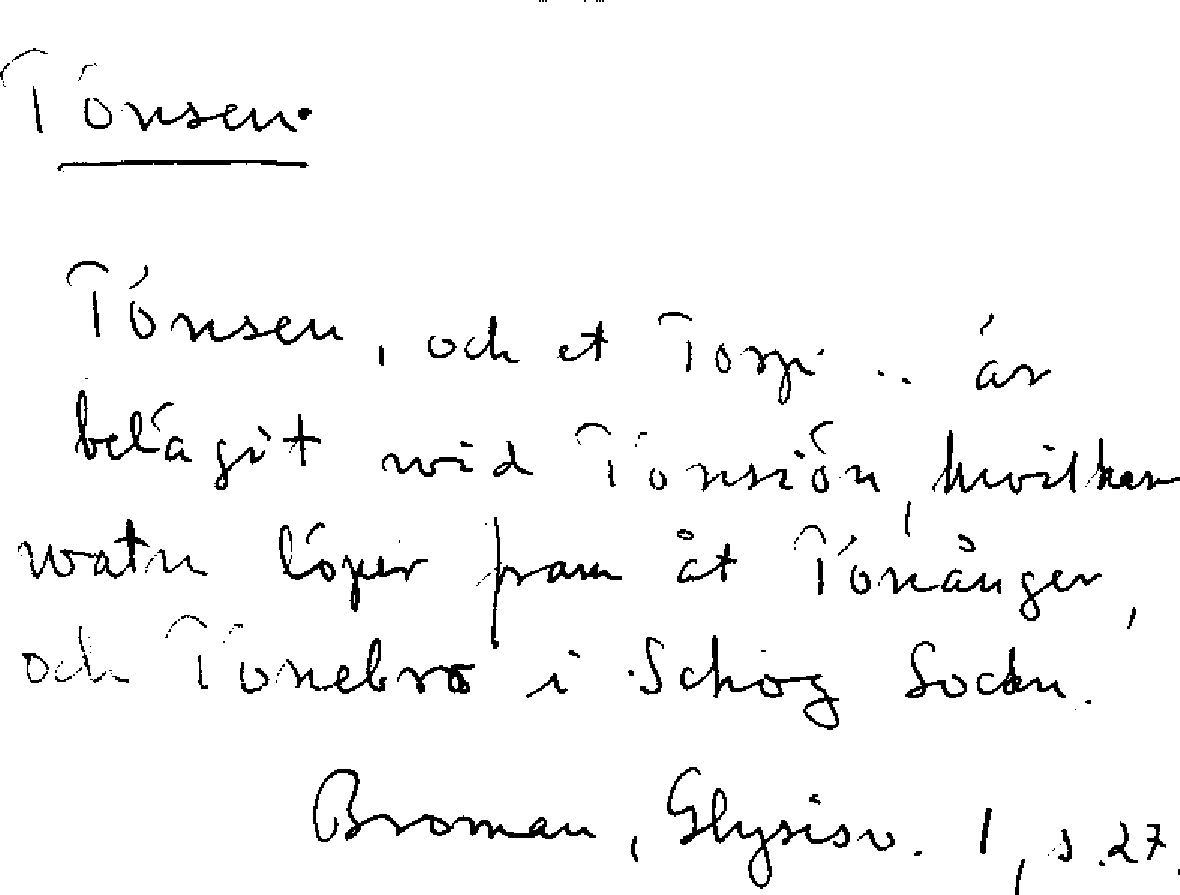 Tönsen.
Tönsen, och et Torp .. är
belägit wid Tönsiön, hwilken
watn löper fram åt Tönånger,
och Tönebro i Schog Sockn.
Broman, Glysisv. 1, s. 27.